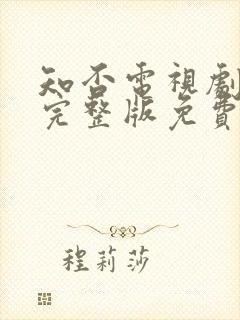 知否電視劇
完整版免費
程莉莎